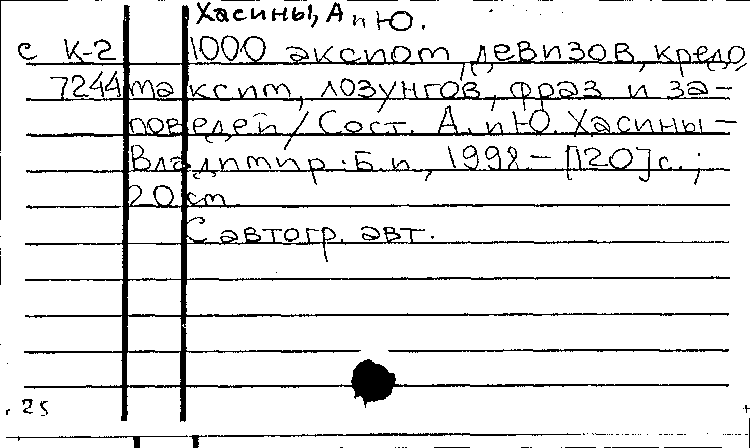 Хасины, А и Ю.
с К-2 1000 аксиом, девизов, кредо,
7244 максим, лозунгов, фраз и за-
поведей / Сост. А. и Ю. Хасины –
Владимир: Б.и., 1998. – [120] с.;
20 см
С автогр. авт.
25